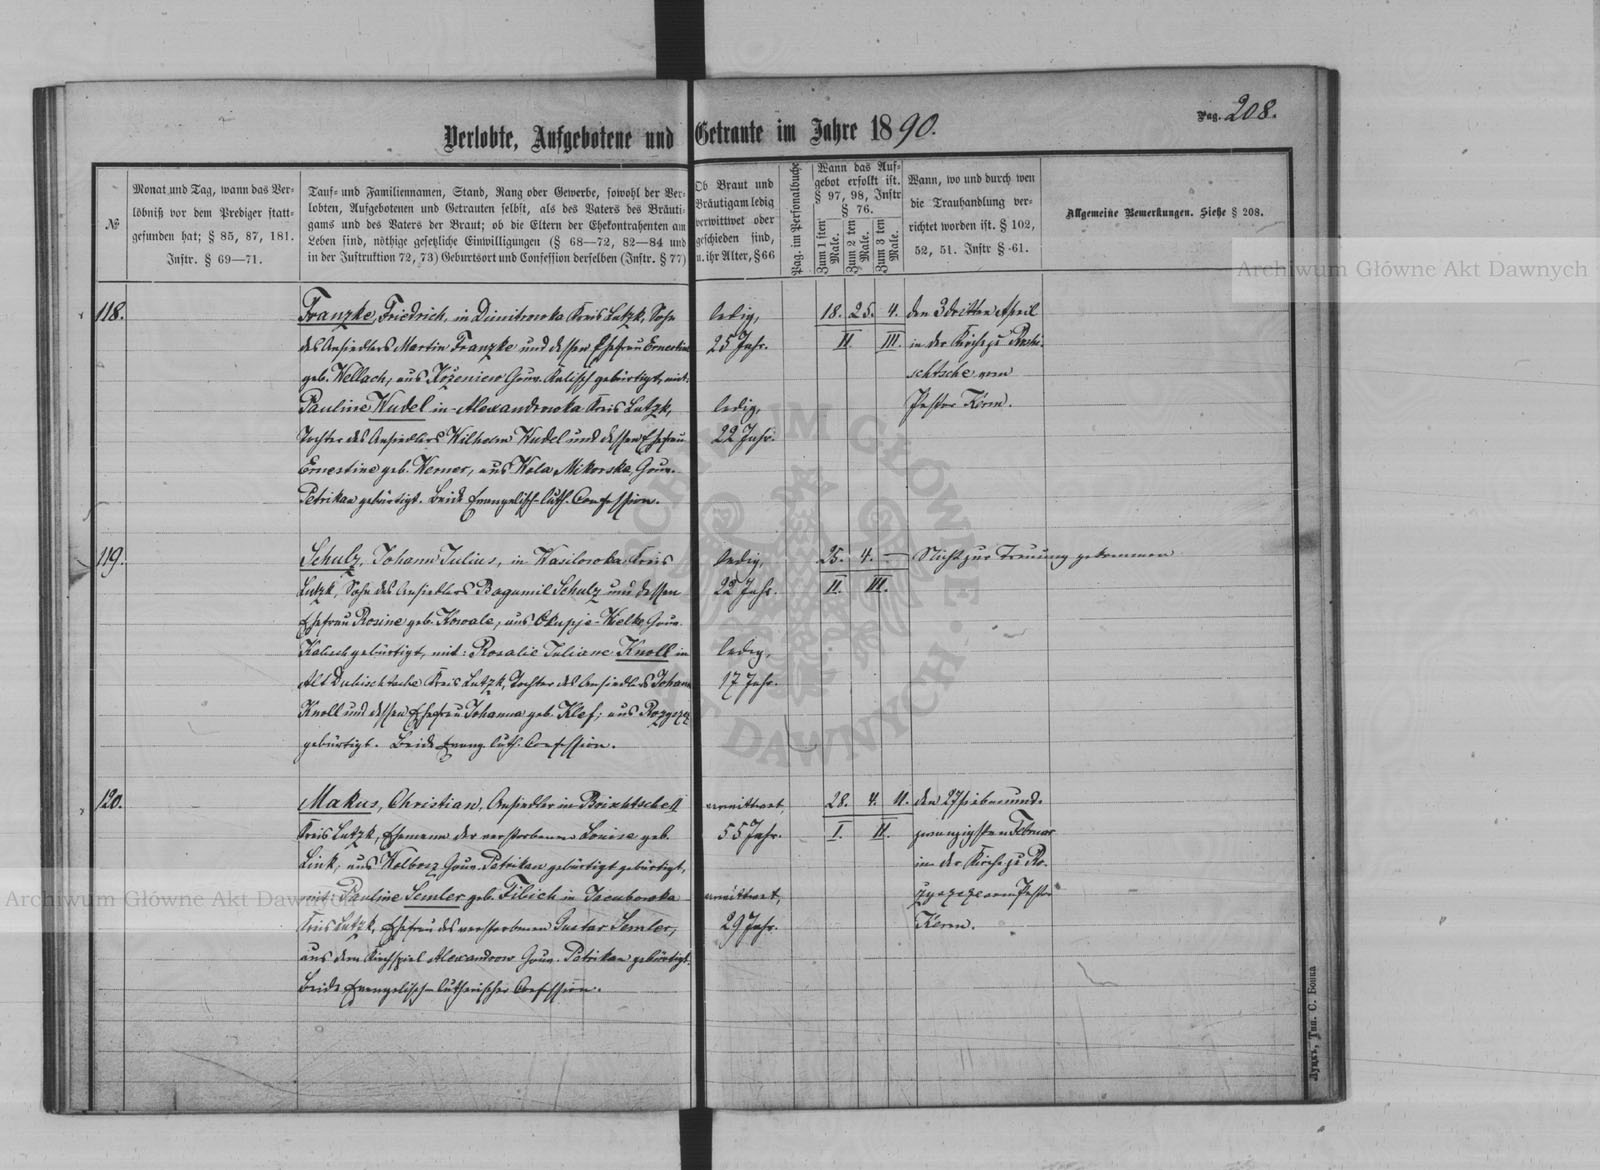 Pag. 208.
Verlobte, Aufgebotene und Getraute im Jahre 1890.
№
Monat und Tag, wann das Ver-
löbniß vor dem Prediger statt-
gefunden hat; § 85, 87, 181.
Instr. § 69—71.
Tauf- und Familiennamen, Stand, Rang oder Gewerbe, sowohl der Ver-
lobten, Aufgebotenen und Getrauten selbst, als des Vaters des Bräuti-
gams und des Vaters der Braut; ob die Eltern der Ehekontrahenten am
Leben sind, nöthige gesetzliche Einwilligungen (§ 68—72, 82—84 und
in der Justruktion 72, 73) Geburtsort und Confession derselben (Instr. § 77)
Ob Braut und
Bräutigam ledig
verwittwet oder
geschieden sind,
u. ihr Alter, § 66
Pag. im Personalbuche
Wann das Auf-
gebot erfolkt ist.
§ 97, 98, Instr
§ 76.
Zum 1 sten Male.
Zum 2 ten Male.
Zum 3 ten Male.
Wann, wo und durch wen
die Trauhandlung ver-
richtet worden ist. § 102,
52, 51. Instr § 61.
Allgemeine Bemerkungen. Siehe § 208.
118.
Franzke, Friedrich, in Dimitrowka Kreis Lutzk, Sohn
des Ansiedlers Martin Franzke und dessen Ehefrau Ernestine
geb. Wellach, aus Kożeniew Gouv. Kalisch gebürtigt, mit:
Pauline Wudel in Alexandrowka Kreis Lutzk,
Tochter des Ansiedlers Wilhelm Wudel und dessen Ehefrau
Ernestine geb. Werner, aus Wola Mikorska, Gouv.
Petrikau gebürtigt. Beide Evangelisch-luth. Confession.
ledig,
25 Jahr.
ledig,
22 Jahr.
18. 25. 4.
II. III.
den 3 dritten April
in der Kirche zu Roshi-
schtsche vom
Pastor Kerm.
119.
Schulz, Johann Julius, in Wasilowka, Kreis
Lutzk, Sohn des Ansiedlers Bogumil Schulz und dessen
Ehefrau Rosine geb. Kowale, aus Okupje-Wielke, Gouv.
Kalisch gebürtigt, mit: Rosalie Juliane Knoll in
Alt Kreis Lutzk, Tochter des Ansiedlers Johann
Knoll und dessen Ehefrau Johanna geb. Klef, aus
gebürtigt. Beide Evang. luth. Confession.
ledig,
22 Jahr.
ledig,
17 Jahr.
25. 4. —
II. III.
Nicht zur Trauung gekommen
120.
Makus, Christian, Ansiedler in
Kreis Lutzk, Ehemann der verstorbenen Louise geb.
Link, aus Wolborz Gouv. Petrikau gebürtigt gebürtigt,
mit: Pauline Semler geb. Fibich in Jacubowka
Kreis Lutzk, Ehefrau des verstorbenen Gustav Semler,
aus dem Kirchspiel Alexandrow Gouv. Petrikau gebürtigt.
Beide Evangelisch-lutherischer Confession.
verwittwet,
55 Jahr.
verwittwet,
29 Jahr.
28. 4. 11.
I. II.
den 27 siebenund-
zwanzigsten Februar
in der Kirche zu Ro-
vom Pastor
Kerm.
Луцкъ, Тип. С. Бонка
Archiwum Główne Akt Dawnych
Archiwum Główne Akt Dawnych
ARCHIWUM GŁÓWNE AKT DAWNYCH